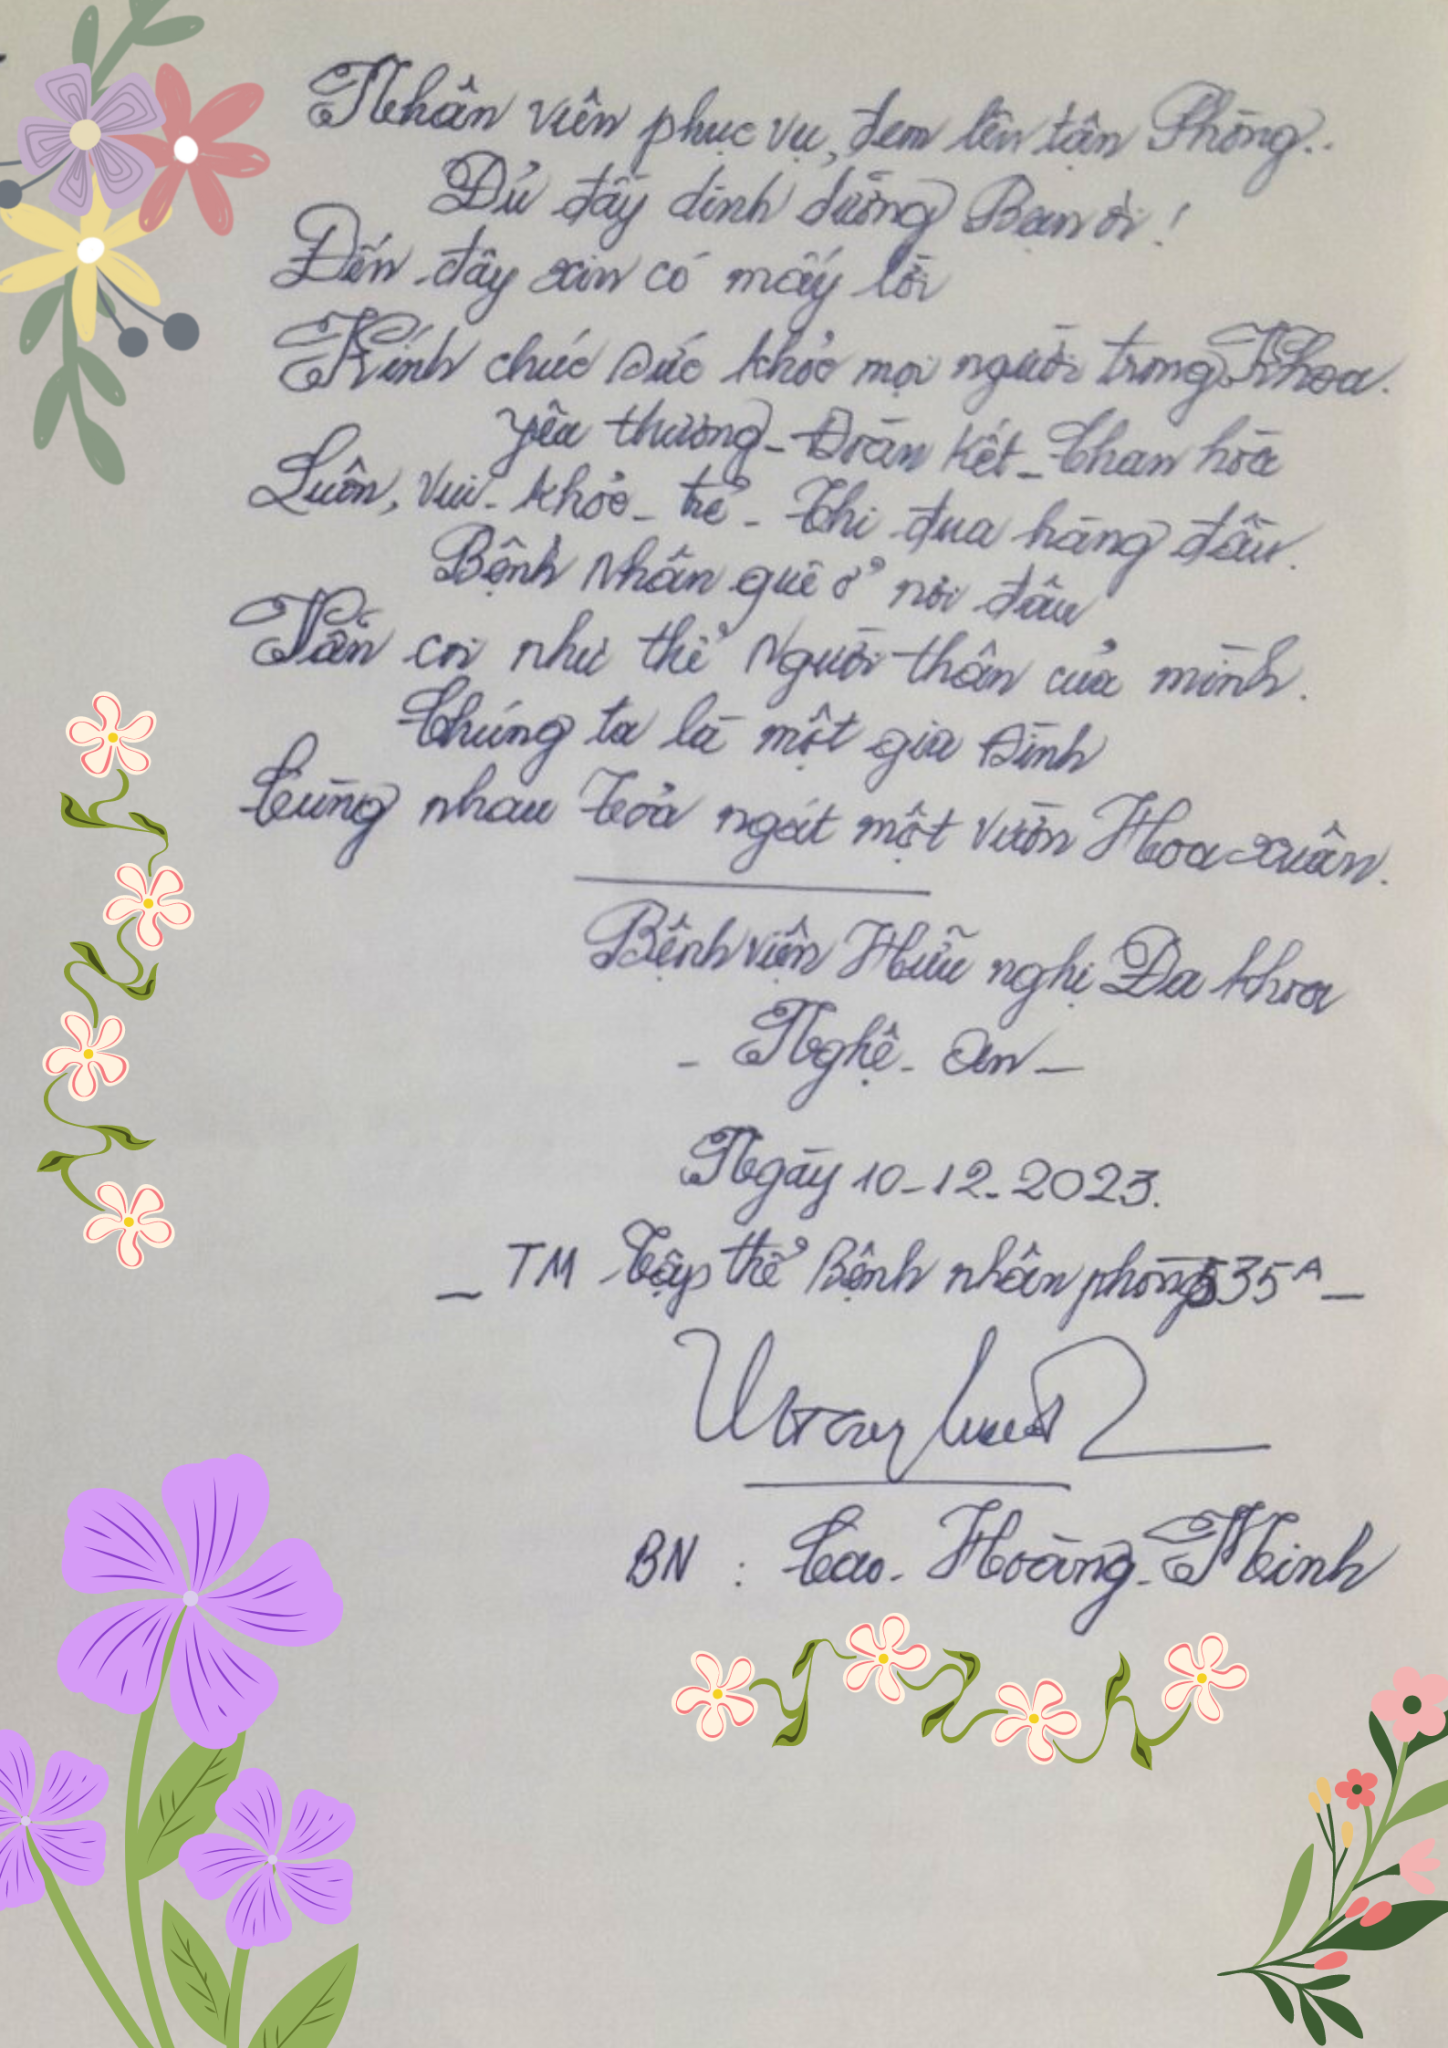 Nhân viên phục vụ, đem lên tận Phòng..
Đủ đầy dinh dưỡng Bạn ơi!
Đến đây xin có mấy lời
Kính chúc sức khỏe mọi người trong Khoa.
yêu thương - Đoàn kết - Chan hòa
Luôn, vui - khỏe - trẻ - Thi đua hàng đầu.
Bệnh nhân quê ở nơi đâu
Vẫn coi như thể Người thân của mình.
Chúng ta là một gia Đình
Cùng nhau tỏa ngát một vườn Hoa xuân.
Bệnh viện Hữu nghị Đa khoa
- Nghệ - An -
Ngày 10-12-2023.
- TM Tập thể Bệnh nhân phòng 535A -
BN : Cao - Hoàng - Minh